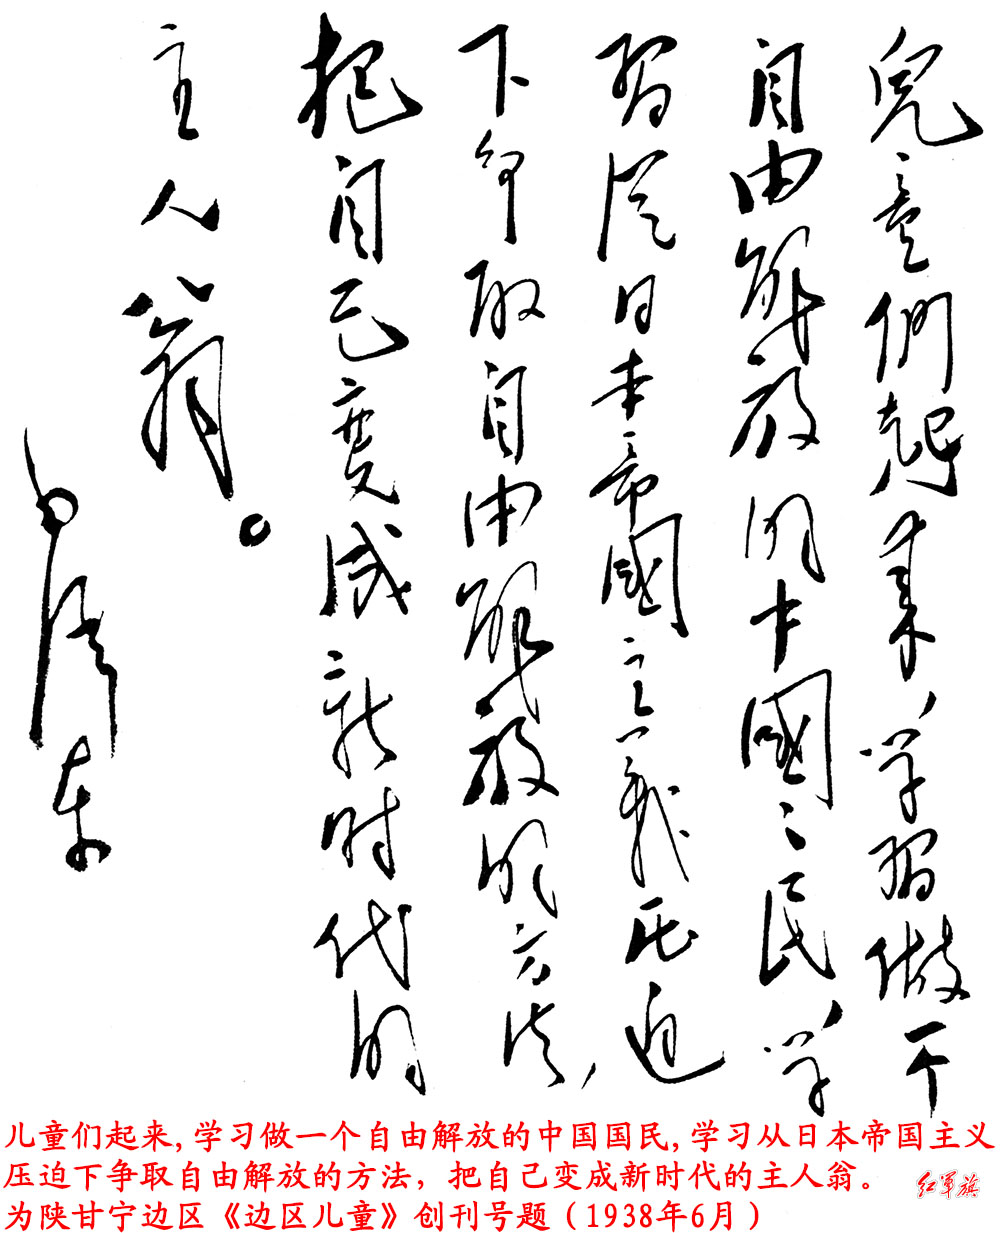 兒童們起来，学習做一个
自由解放的中國々民，学
習從日本帝國主義压迫
下争取自由解放的方法，
把自己变成新时代的
主人翁。
毛泽东
儿童们起来,学习做一个自由解放的中国国民,学习从日本帝国主义
压迫下争取自由解放的方法，把自己变成新时代的主人翁。
为陕甘宁边区《边区儿童》创刊号题（1938年6月）
红军旗